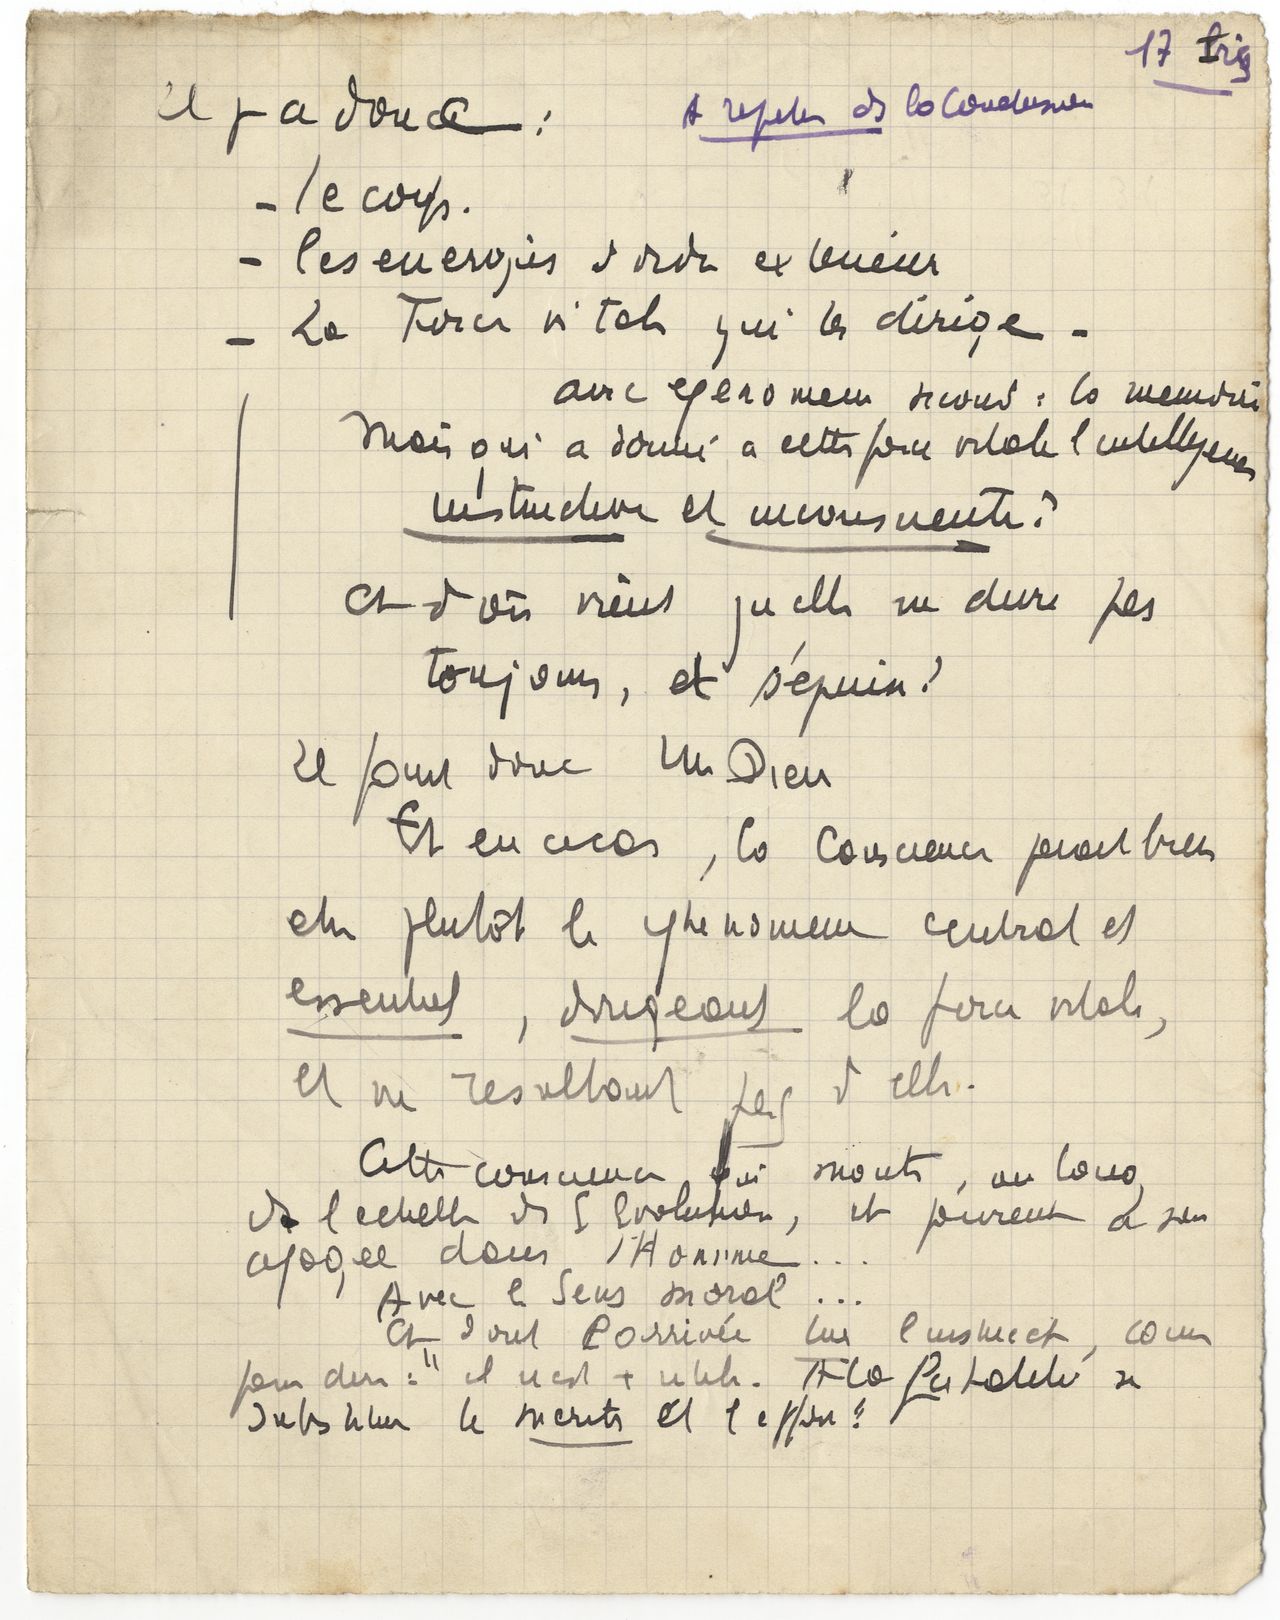 17
Il y a donc :
A repeter ds la Conclusion
- le corps.
- les energies d'ordre exterieur
- La Force vitale qui les dirige -
avec phenomene second : la memoire
Mais qui a donné a cette force vitale l'intelligence
instinctive et inconsciente ?
Et d'où vient qu'elle ne dure pas
toujours, et s'épuise ?
Il faut donc Un Dieu
Et en ce cas, la Conscience parait bien
etre plutôt le phenomene central et
essentiel, dirigeant la force vitale,
et ne resultant pas d'elle.
Cette conscience qui monte, au long
de l'echelle de l'Evolution, et parvient à son
apogée dans l'Homme ....
Avec le Sens moral ...
Et dont l'arrivée tue l'instinct, comme
pour dire : " il n'est + utile. A la Fatalité se
substitue le merite et l'effort "